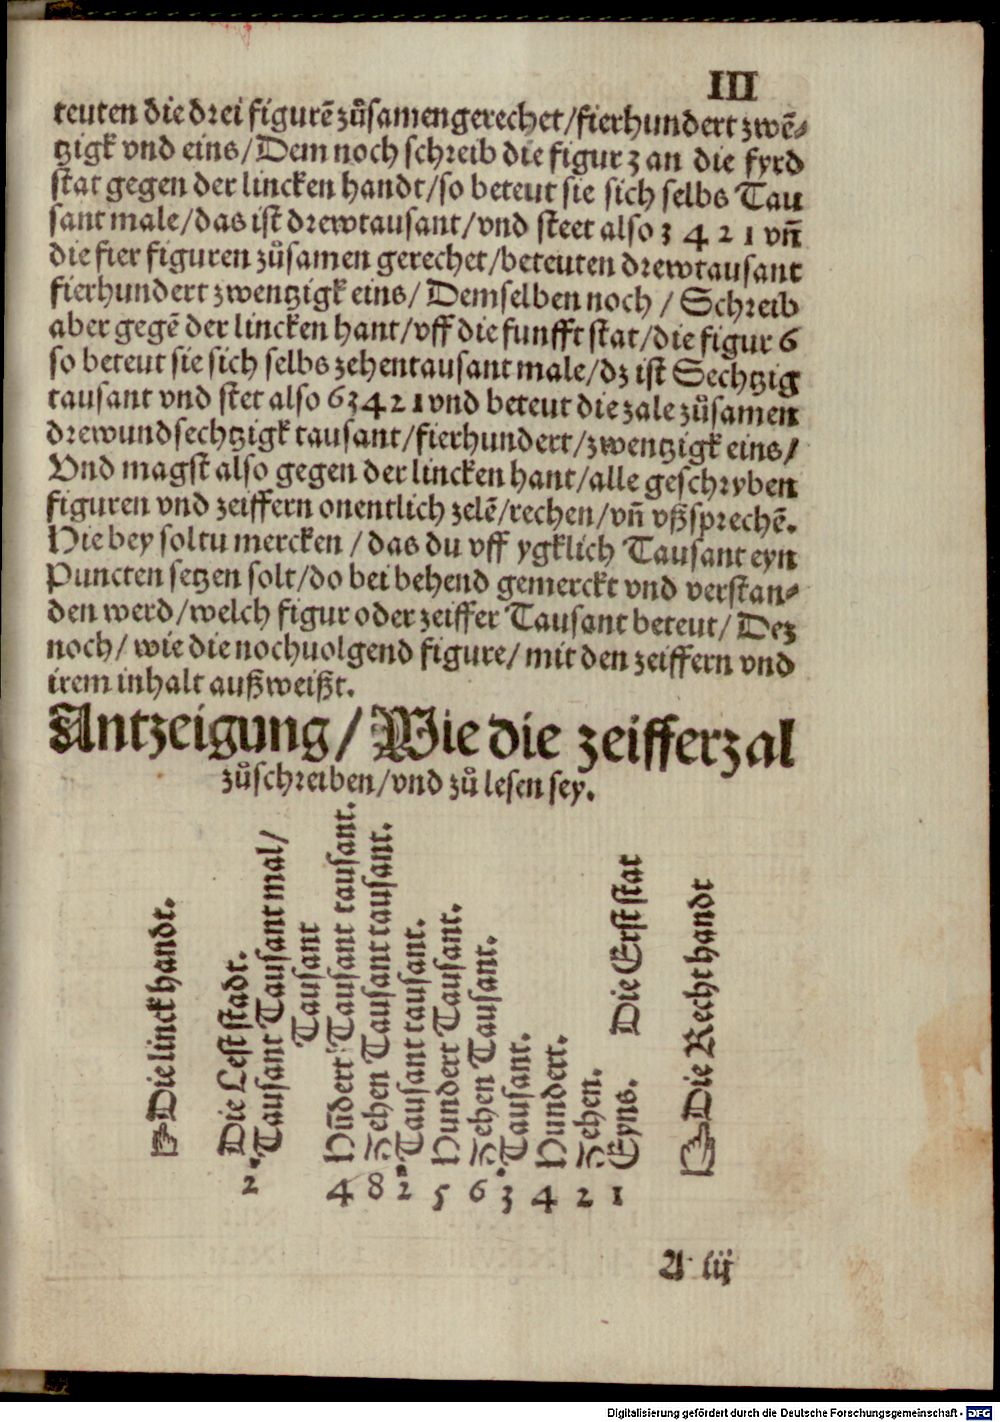 III
teuten die drei figurē zůsamengerechet/fierhundert zwē-
tzigk vnd eins/Dem noch schreib die figur 3 an die fyrd
stat gegen der lincken handt/so beteut sie sich selbs Tau
sant male/das ist drewtausant/vnd steet also 3 4 2 1 vñ
die fier figuren zůsamen gerechet/beteuten drewtausant
fierhundert zwentzigk eins/ Demselben noch / Schreib
aber gegē der lincken hant/vff die funfft stat/die figur 6
so beteut sie sich selbs zehentausant male/dz ist Sechtzig
tausant vnd stet also 6 3 4 2 1 vnd beteut die zale zůsamen
drewundsechtzigk tausant/fierhundert/zwentzigk eins/
Vnd magst also gegen der lincken hant/alle geschryben
figuren vnd zeiffern onentlich zelē/rechen/vñ vßsprechē.
Hie bey soltu mercken / das du vff ygklich Tausant eyn
Puncten setzen solt/do bei behend gemerckt vnd verstan-
den werd/welch figur oder zeiffer Tausant beteut/ Dez
noch/ wie die nochuolgend figure/ mit den zeiffern vnd
irem inhalt außweißt.
Antzeigung/ Wie die zeifferzal
zůschreiben/vnd zů lesen sey.
☞Die linck handt.
Die Lest stadt.
2 Tausant Tausant mal/
Tausant
4 Hūdert Tausant tausant.
8 Zehen Tausant tausant.
2 Tausant tausant.
5 Hundert Tausant.
6 Zehen Tausant.
3 Tausant.
4 Hundert.
2 Zehen.
1 Eyns. Die Erst stat
☞Die Recht handt
A iij
Digitalisierung gefördert durch die Deutsche Forschungsgemeinschaft - DFG